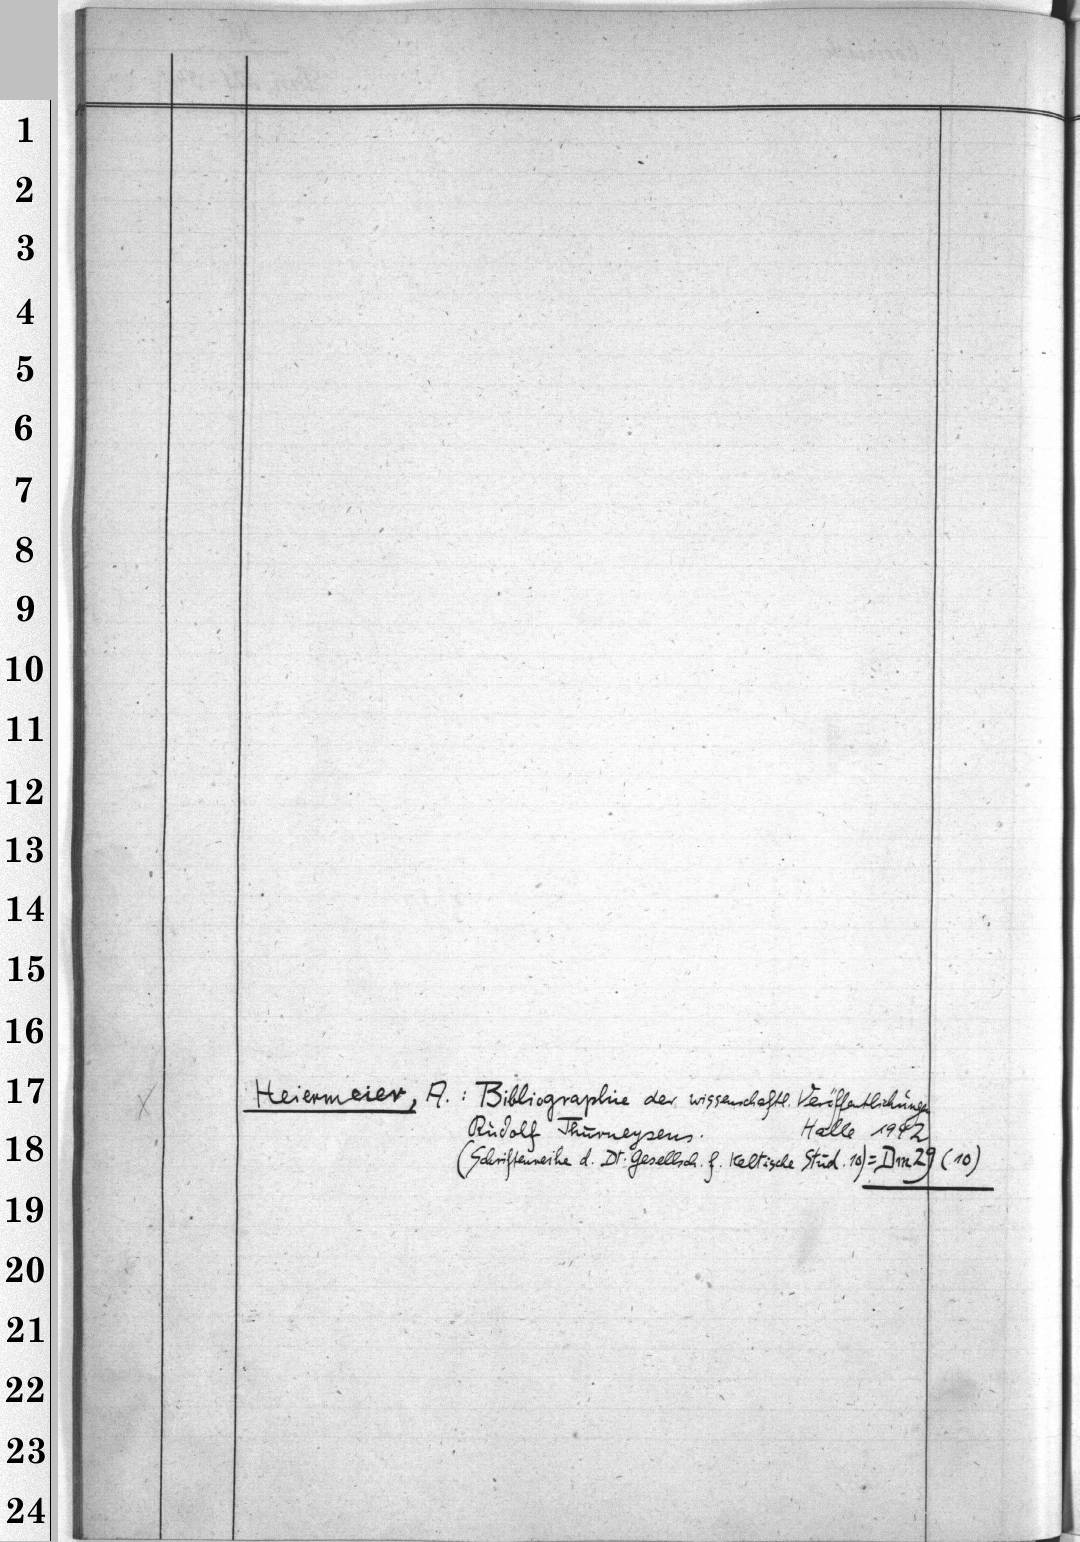 1
2
3
4
5
6
7
8
9
10
11
12
13
14
15
16
17
Heiermeier, A.: Bibliographie der wissenschaftl. Veröffentlichungen
Rudolf Thurneysens. Halle 1942
18
(Schriftenreihe d. Dt. Gesellsch. f. Keltische Stud. 10) = Dm 29 (10)
19
20
21
22
23
24